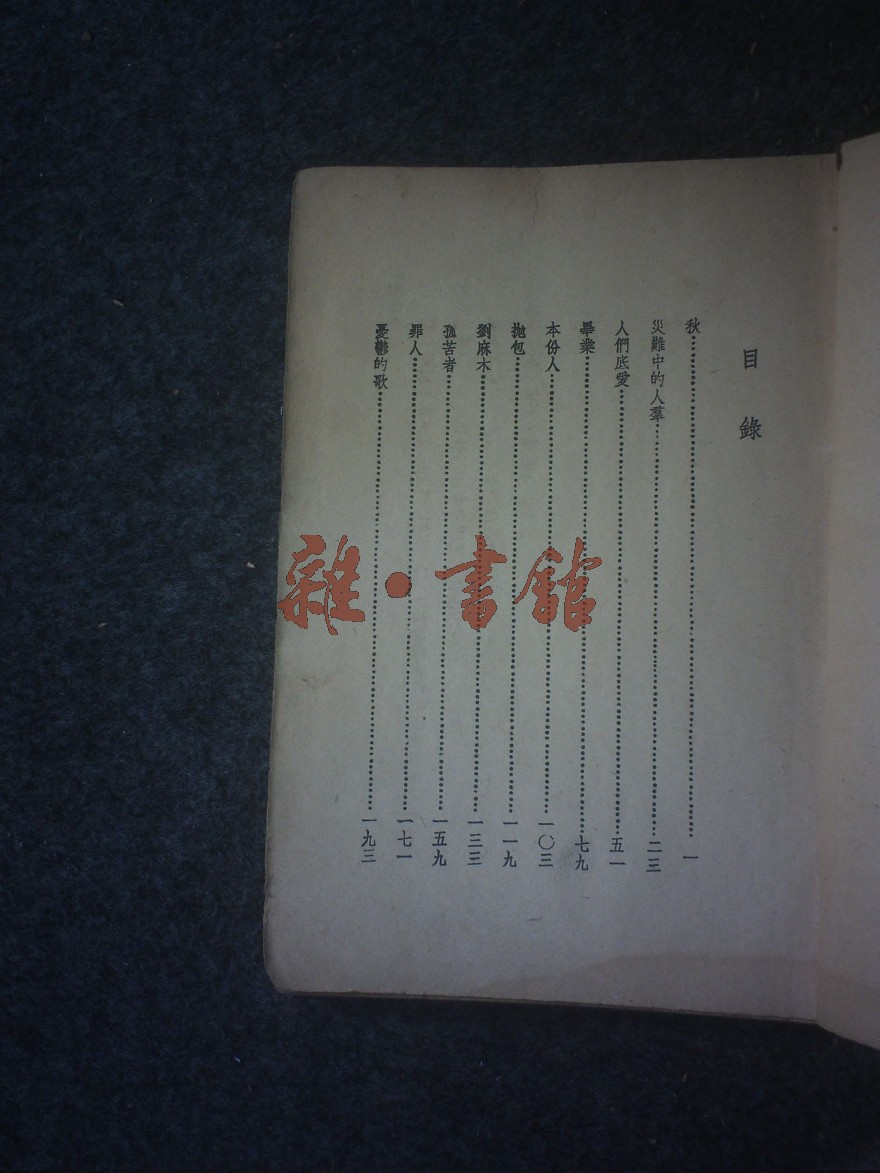 目錄
秋……一
災難中的人羣……二三
人們底愛……五一
畢業……七九
本份人……一〇三
拋包……一一九
劉麻木……一三三
孤苦者……一五九
罪人……一七一
憂鬱的歌……一九三
雜·書館